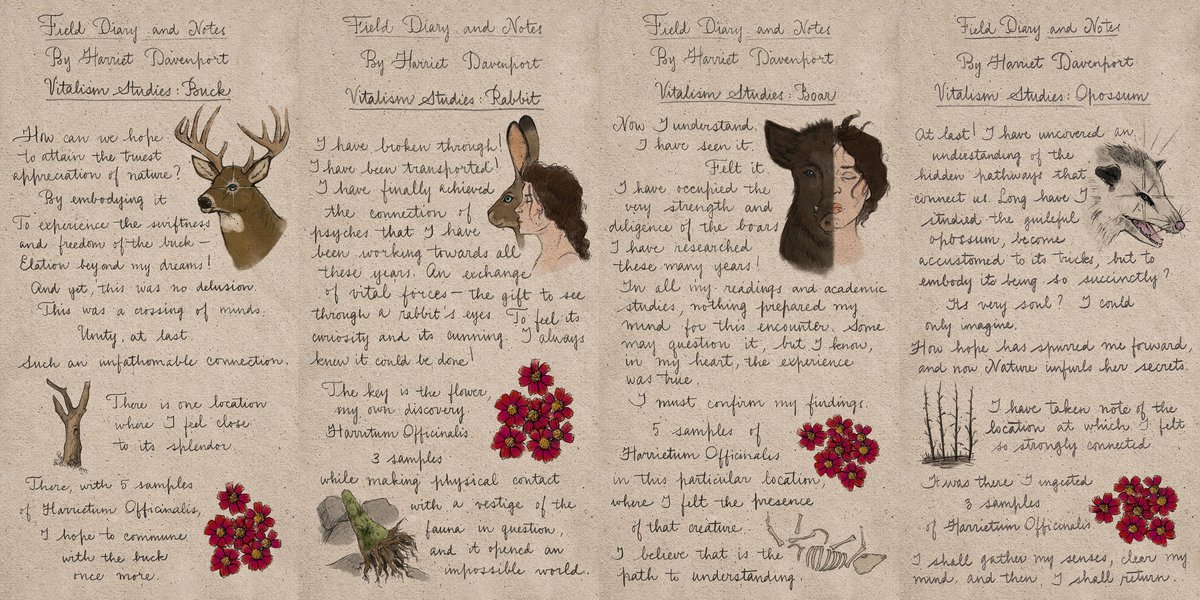 Field Diary and Notes
By Harriet Davenport
Vitalism Studies: Buck
How can we hope
to attain the truest
appreciation of nature?
By embodying it
To experience the swiftness
and freedom of the buck –
Elation beyond my dreams!
And yet, this was no delusion.
This was a crossing of minds.
Unity, at last.
Such an unfathomable connection.
There is one location
where I feel close
to its splendor.
There, with 5 samples
of Harrietum Officinalis,
I hope to commune
with the buck
once more.
Field Diary and Notes
By Harriet Davenport
Vitalism Studies: Rabbit
I have broken through!
I have been transported!
I have finally achieved
the connection of
psyches that I have
been working towards all
these years. An exchange
of vital forces – the gift to see
through a rabbit's eyes To feel its
curiosity and its cunning. I always
knew it could be done!
The key is the flower,
my own discovery,
Harrietum Officinalis.
3 samples
while making physical contact
with a vestige of the
fauna in question,
and it opened an
impossible world.
Field Diary and Notes
By Harriet Davenport
Vitalism Studies: Boar
Now I understand.
I have seen it.
Felt it
I have occupied the
very strength and
diligence of the boars
I have researched
these many years!
In all my readings and academic
studies, nothing prepared my
mind for this encounter. Some
may question it, but I know,
in my heart, the experience
was true.
I must confirm my findings.
5 samples of
Harrietum Officinalis
in this particular location,
where I felt the presence
of that creature.
I believe that is the
path to understanding.
Field Diary and Notes
By Harriet Davenport
Vitalism Studies: Opossum
At last! I have uncovered an
understanding of the
hidden pathways that
connect us. Long have I
studied the guileful
opossum, become
accustomed to its tricks, but to
embody its being so succinctly?
Its very soul? I could
only imagine.
How hope has spurred me forward,
and now Nature unfurls her secrets.
I have taken note of the
location at which I felt
so strongly connected
It was there I ingested
3 samples
of Harrietum Officinalis
I shall gather my senses, clear my
mind, and then I shall return.